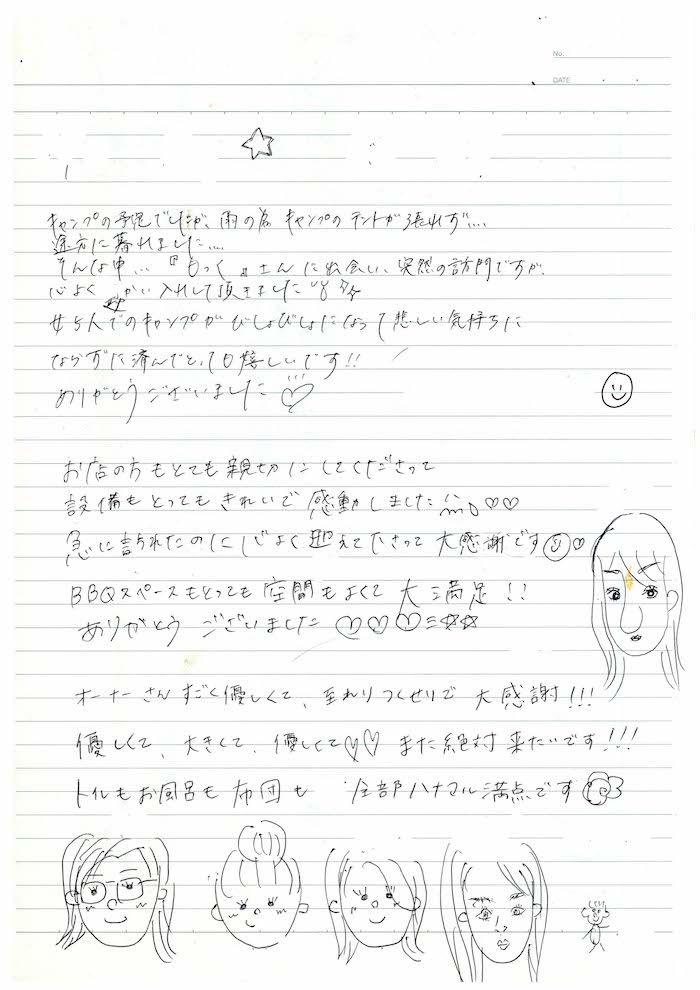 No.
DATE
キャンプの予定でしたが、雨の為 キャンプの テントが 張れず…
途方に暮れました…
そんな中…『もっく』さんに出会い、突然の訪問ですが、
心よく かい入れして頂きました
女5人でのキャンプが びしょびしょになって 悲しい気持ちに
ならずに済んでとっても嬉しいです!!
ありがとう ございました♡
お店の方もとても親切にしてくださって
設備もとってもきれいで 感動しました ♡♡
急に訪られたのに 心よく 迎えて下さって 大感謝です ♡
BBQスペースもとっても空間もよくて 大満足!!
ありがとう ございました ♡♡♡ ☆☆
オーナーさん すごく優しくて、至れりつくせりで 大感謝!!!
優しくて、大きくて、優しくて♡♡ また絶対 来たいです!!!
トイレもお風呂も 布団も 全部ハナマル満点です